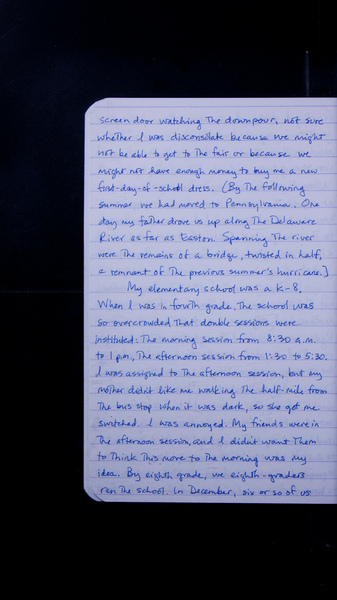 screen door watching the downpour, not sure
whether I was disconsolate because we might
not be able to get to the fair or because we
might not have enough money to buy me a new
first-day-of-school dress. (By the following
summer we had moved to Pennsylvania. One
day my father drove us up along the Delaware
River as far as Easton. Spanning the river
were the remains of a bridge, twisted in half,
a remnant of the previous summer's hurricane.]
My elementary school was a K-8.
When I was in fourth grade, the school was
so overcrowded that double sessions were
instituted: The morning session from 8:30 a.m.
to 1 p.m., The afternoon session from 1:30 to 5:30.
I was assigned to the afternoon session, but my
mother didn't like me walking the half-mile from
the bus stop when it was dark, so she got me
switched. I was annoyed. My friends were in
the afternoon session, and I didn't want them
to think this move to the morning was my
idea. By eighth grade, we eighth-graders
ran the school. In December, six or so of us